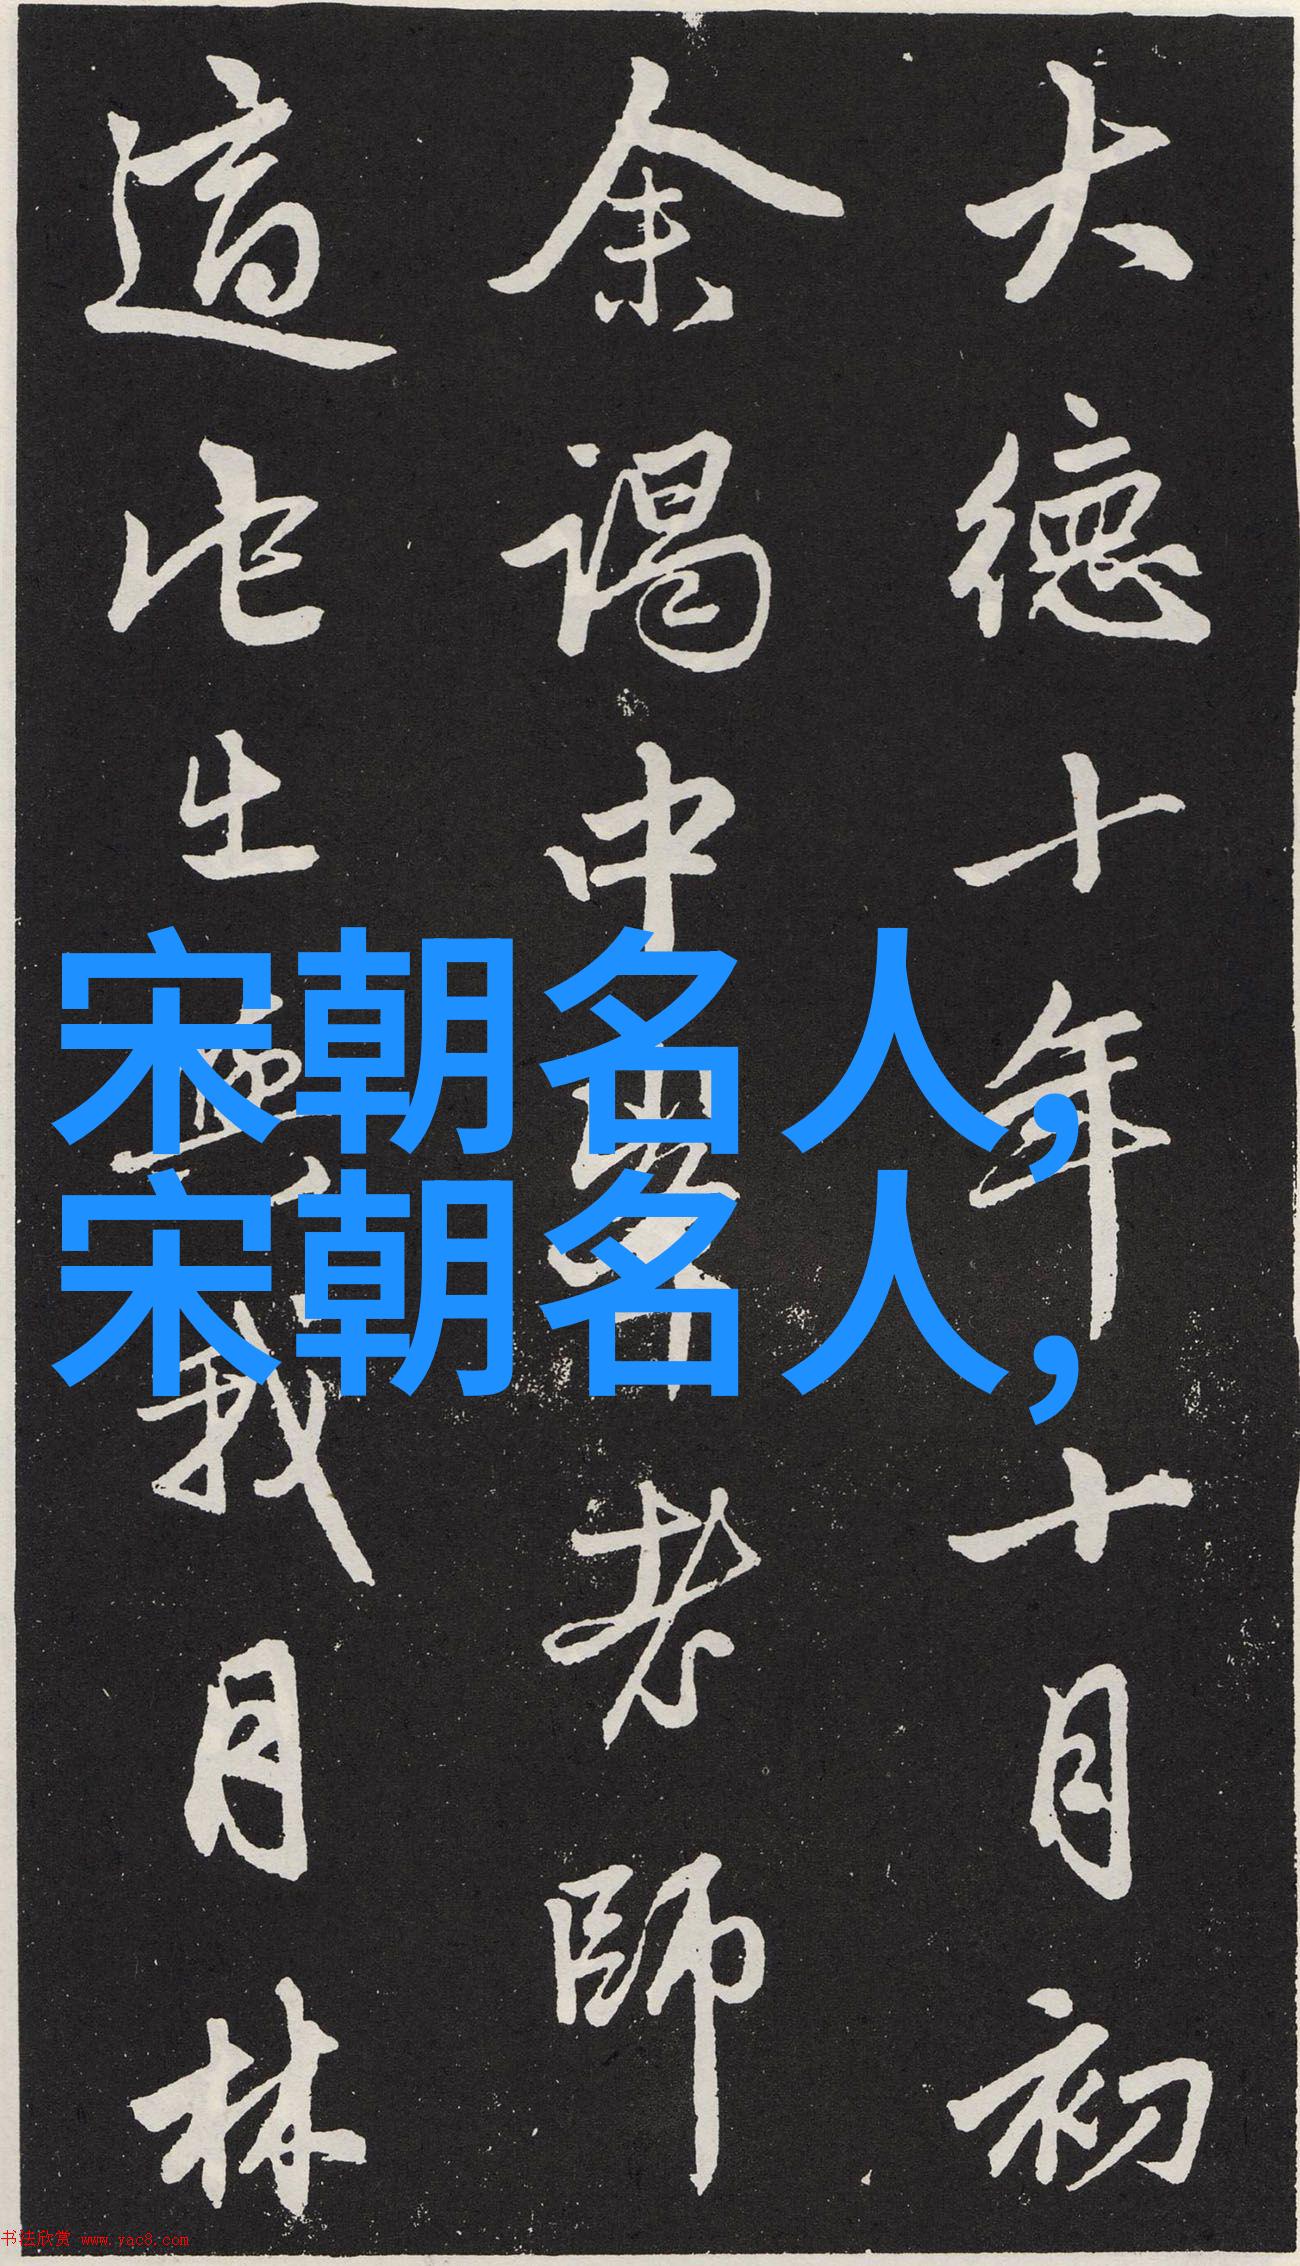 大德十年十月初
余謁中峯老師
適此出與我月林
宋朝名人,
宋朝名人,
书法欣赏 www.yac8.com